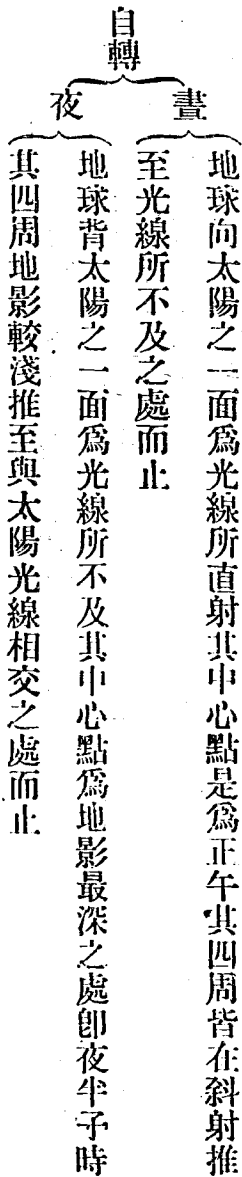 自轉
晝
地球向太陽之一面爲光線所直射其中心點是爲正午其四周皆在斜射推
至光線所不及之處而止
夜
地球背太陽之一面爲光線所不及其中心點爲地影最深之處卽夜半子時
其四周地影較淺推至與太陽光線相交之處而止